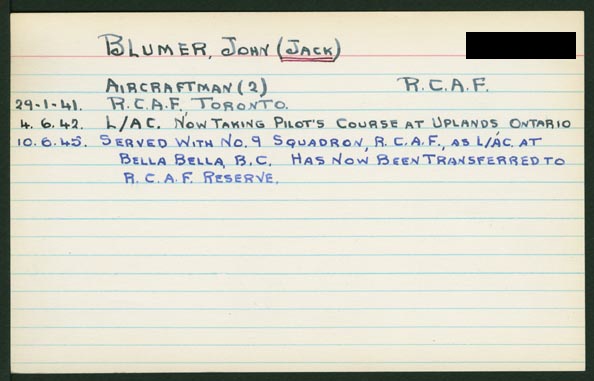 BLUMER, JOHN (JACK)
AIRCRAFTMAN (2) R.C.A.F.
29-1-41. R.C.A.F, TORONTO.
4.6.42. L/AC. NOW TAKING PILOT'S COURSE AT UPLANDS, ONTARIO
10.6.45. SERVED WITH NO. 9 SQUADRON, R.C.A.F., AS L/AC. AT
BELLA BELLA, B.C. HAS NOW BEEN TRANSFERRED TO
R.C.A.F. RESERVE.